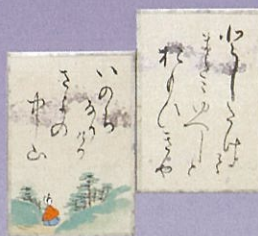 としたけて
またこゆへしと
おもひきや
いのち
なりけり
さよの
中山